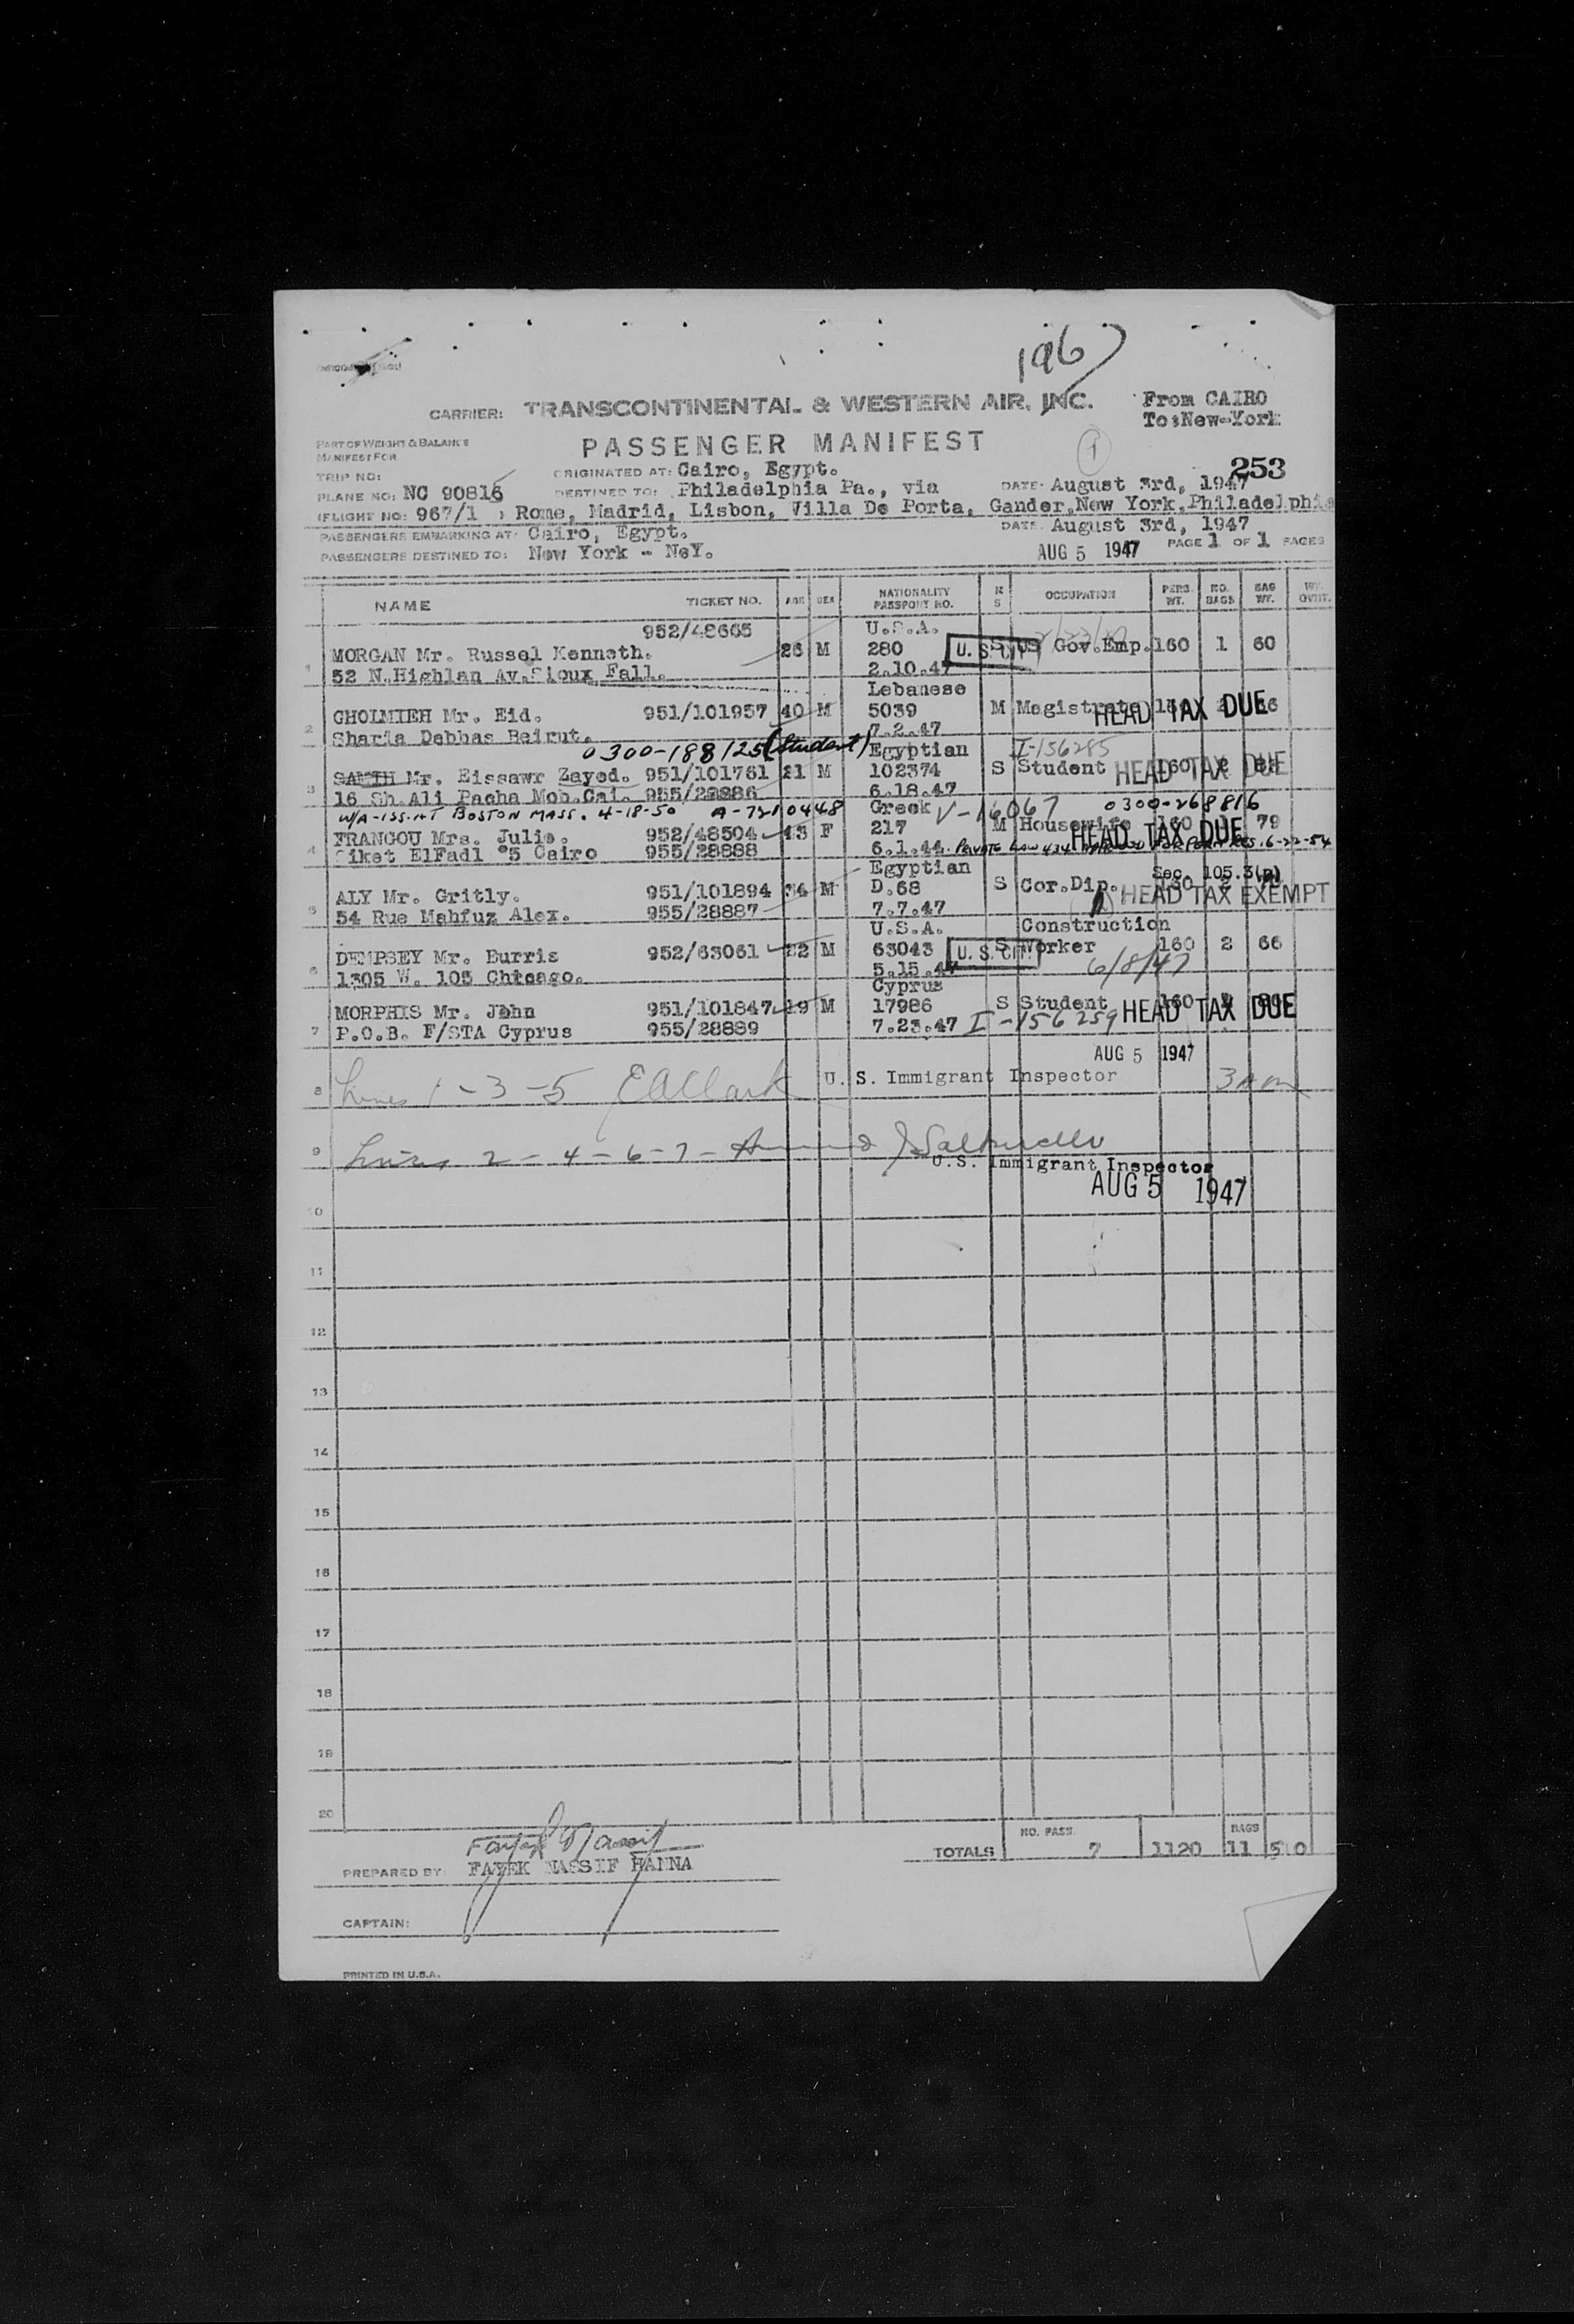 1967
CARRIER: TRANSCONTINENTAL & WESTERN AIR, INC. From CAIRO
To:New-York
PART OF WEIGHT & BALANCE
MANIFEST FOR
PASSENGER MANIFEST
1
253
TRIP NO: ORIGINATED AT: Cairo, Egypt.
PLANE NO: NC 90816 DESTINED TO: Philadelphia Pa., via DATE: August 3rd, 1947
(FLIGHT NO: 967/1 ) Rome, Madrid, Lisbon, Villa De Porta, Gander,New York,Philadelphia
PASSENGERS EMBARKING AT: Cairo, Egypt. DATE: August 3rd, 1947
PASSENGERS DESTINED TO: New York - NeY. AUG 5 1947 PAGE 1 OF 1 PAGES
NAME TICKET NO. AGE SEX NATIONALITY PASSPORT NO. M S OCCUPATION PERS. WT. NO. BAGS BAG WT. WT. OVHT.
952/48665 U.S.A.
1 MORGAN Mr. Russel Kenneth. 26 M 280 U. S. CIT. S US Gov.Emp. 160 1 60
52 N.Highlan Av.Sioux Fall. 2.10.47
Lebanese
2 GHOLMIEH Mr. Eid. 951/101957 40 M 5039 M Magistrate HEAD TAX DUE
Sharia Debbas Beirut. 7.2.47
0300-188125 (Student) Egyptian I-156285
3 SAMIH Mr. Eissawr Zayed. 951/101761 21 M 102374 S Student 160 HEAD TAX DUE
16 Sh.Ali Pacha Mob.Cai. 955/28886 6.18.47
W/A-ISS.NT BOSTON MASS. 4-18-50 A-7210448 Greek V-16067 0300-268816
4 FRANGOU Mrs. Julie. 952/48504 43 F 217 M Housewife 160 79 HEAD TAX DUE
Siket ElFadl 5 Cairo 955/28888 6.1.44. PRIVATE LAW 434 6-22-54
Egyptian Sec. 105.3(a)
5 ALY Mr. Gritly. 951/101894 34 M D.68 S Cor.Dip. HEAD TAX EXEMPT
54 Rue Mahfuz Alex. 955/28887 7.7.47
U.S.A. Construction
6 DEMPSEY Mr. Burris 952/63061 22 M 63043 U. S. CIT. S Worker 160 2 66
1305 W. 105 Chicago. 5.15.47 6/8/47
Cyprus
7 MORPHIS Mr. John 951/101847 19 M 17986 S Student 160 HEAD TAX DUE
P.O.B. F/STA Cyprus 955/28889 7.23.47 I-156259
AUG 5 1947
8 Lines 1-3-5 E A Clark U. S. Immigrant Inspector
9 Lines 2-4-6-7-
U.S. Immigrant Inspector
AUG 5 1947
10
11
12
13
14
15
16
17
18
19
20
NO. PASS. BAGS
TOTALS 7 1120 11
PREPARED BY: FAYEK NASSIF HANNA
CAPTAIN:
PRINTED IN U.S.A.